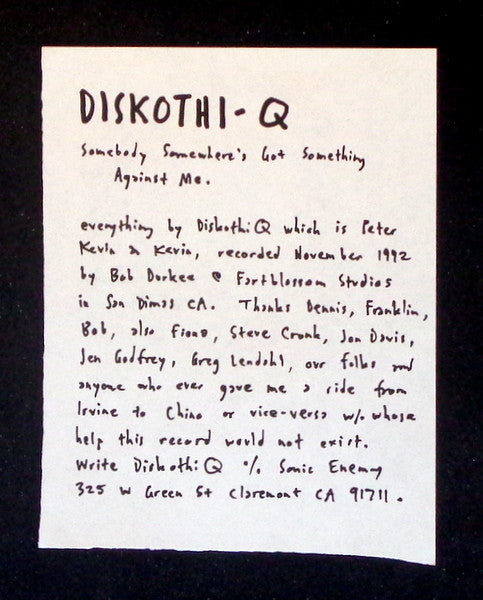 DISKOTHI-Q
Somebody Somewhere's Got Something
Against Me.
everything by DiskothiQ which is Peter
Kevin & Kevin, recorded November 1992
by Bob Durkee @ Fartblossom Studios
in San Dimas CA. Thanks Dennis, Franklin,
Bob, also Fiona, Steve Cronk, Jon Davis,
Jen Godfrey, Greg Lendahl, our folks and
anyone who ever gave me a ride from
Irvine to Chino or vice-versa w/o whose
help this record would not exist.
Write DiskothiQ % Sonic Enemy
325 W Green St Claremont CA 91711.